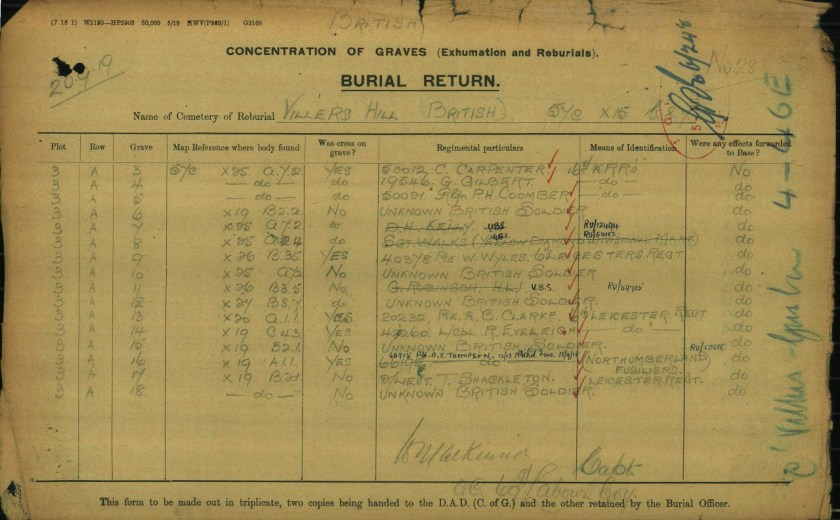 (7 18 1) W1190—HP5906 50,000 5/19 HWV(P982/1) G2109
BRITISH
CONCENTRATION OF GRAVES (Exhumation and Reburials).
BURIAL RETURN.
20.9.19
No. 28
Name of Cemetery of Reburial VILLERS HILL (BRITISH) 57C X15
Plot Row Grave Map Reference where body found Was cross on grave? Regimental particulars Means of Identification Were any effects forwarded to Base?
3 A 3 57C X25 A.7.2 YES 50012 C. CARPENTER 16th KRR's No
3 A 4 — do — do 19546 G. GILBERT. — do — do
3 A 5 — do — do Rfn P.H COOMBER — do — do
3 A 6 X19 B2.2 No UNKNOWN BRITISH SOLDIER do
3 A 7 X25 A.7.2 do D.H. KELLY UBS RU/12494 do
3 A 8 X25 do SGT WALKS UBS do
3 A 9 X26 B.35 YES 40378 Pte W. WYLES. 6th LEICESTERS REGT do
3 A 10 X25 A7.2 No UNKNOWN BRITISH SOLDIER do
3 A 11 X26 B3.5 No G. ROBINSON. H.L.I U.B.S. do
3 A 12 X24 B8.7 do UNKNOWN BRITISH SOLDIER. do
3 A 13 X20 A.1.1 YES 20232, Pte. A. B. CLARKE. LEICESTER REGT do
3 A 14 X19 C43 YES L/Cpl R. EVELEIGH — do — do
3 A 15 X19 B2.1 No UNKNOWN BRITISH SOLDIER. do
3 A 16 X19 A.1.1 YES A. E. THOMPSON, NORTHUMBERLAND FUSILIERS. do
3 A 17 X19 B.21 No 2/LIEUT. T. SHACKLETON. LEICESTER REGT. do
3 A 18 — do — No UNKNOWN BRITISH SOLDIER. do
Capt
This form to be made out in triplicate, two copies being handed to the D.A.D. (C. of G.) and the other retained by the Burial Officer.